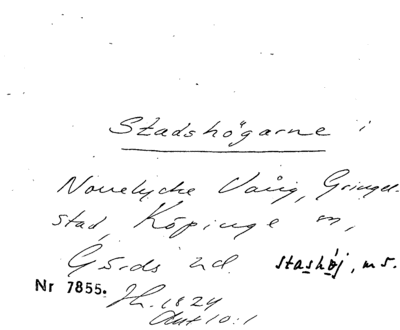 Stadshögarne i
Norrelycke Vång, Gringel-
stad, Köpinge m,
Gärds hd. stashøj, m s.
Nr 7855. Jh. 1824
Akt 10:1